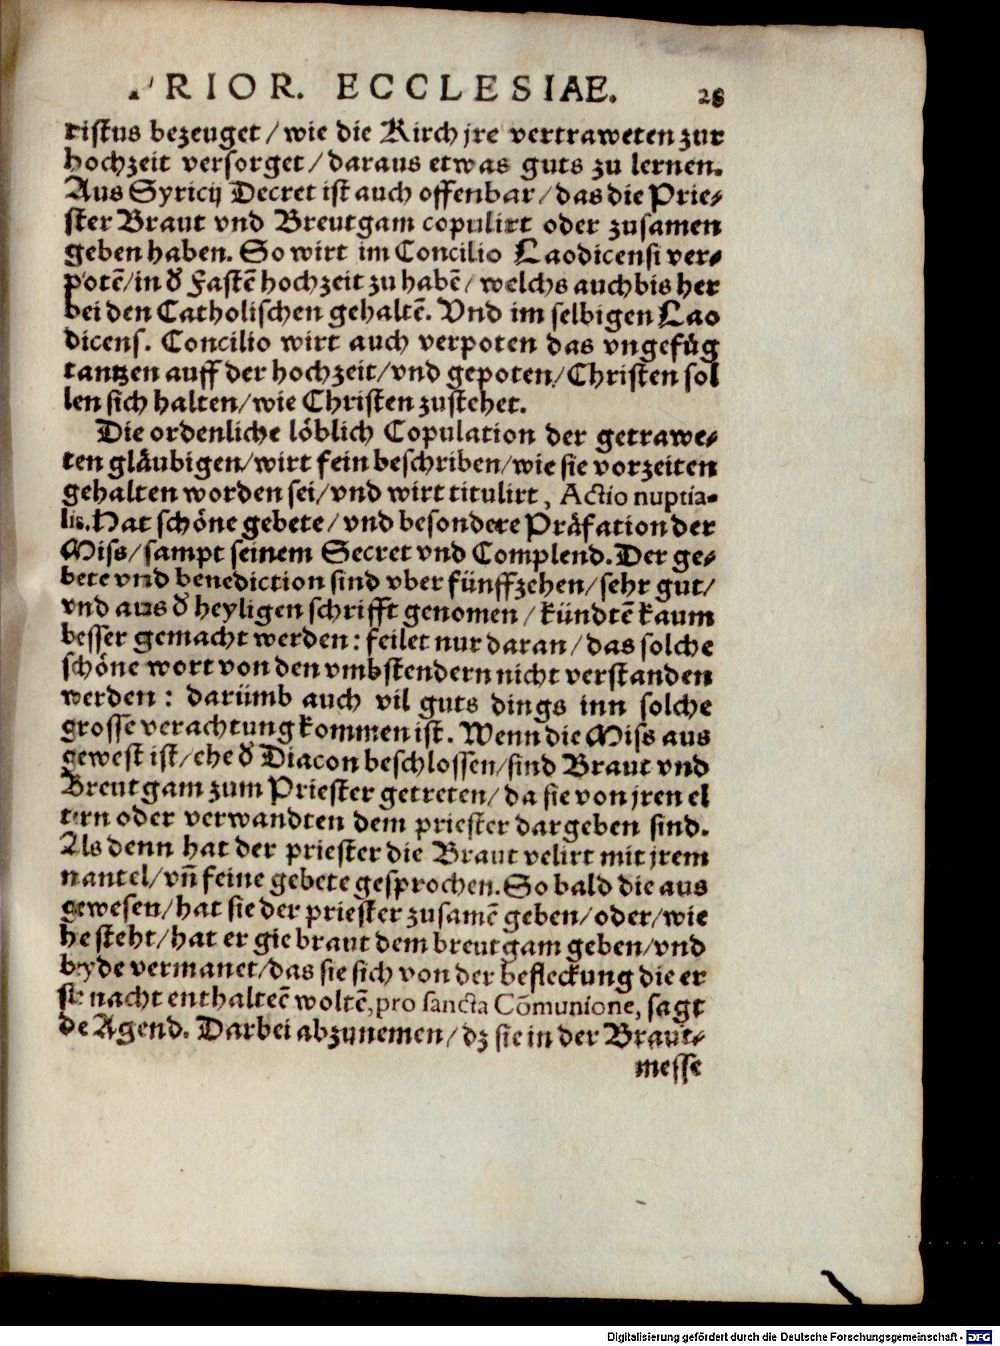 PRIOR. ECCLESIAE. 28
ristus bezeuget / wie die Kirch jre vertraweten zur
hochzeit versorget / daraus etwas guts zu lernen.
Aus Syricij Decret ist auch offenbar / das die Prie-
ster Braut vnd Breutgam copulirt oder zusamen
geben haben. So wirt im Concilio Laodicensi ver-
potẽ / in d̾ Fastẽ hochzeit zu habẽ / welchs auch bis her
bei den Catholischen gehaltẽ. Vnd im selbigen Lao
dicens. Concilio wirt auch verpoten das vngefüg
tantzen auff der hochzeit / vnd gepoten / Christen sol
len sich halten / wie Christen zustehet.
Die ordenliche löblich Copulation der getrawe-
ten gläubigen / wirt fein beschriben / wie sie vorzeiten
gehalten worden sei / vnd wirt titulirt, Actio nuptia-
lis. Hat schöne gebete / vnd besondere Präfation der
Miss / sampt seinem Secret vnd Complend. Der ge-
bete vnd benediction sind vber fünffzehen / sehr gut /
vnd aus d̾ heyligen schrifft genomen / kündtẽ kaum
besser gemacht werden: feilet nur daran / das solche
schöne wort von den vmbstendern nicht verstanden
werden: darümb auch vil guts dings inn solche
grosse verachtung kommen ist. Wenn die Miss aus
gewest ist / ehe d̾ Diacon beschlossen / sind Braut vnd
Breutgam zum Priester getreten / da sie von jren el
tern oder verwandten dem priester dargeben sind.
Als denn hat der priester die Braut velirt mit jrem
mantel / vñ feine gebete gesprochen. So bald die aus
gewesen / hat sie der priester zusamẽ geben / oder / wie
he steht / hat er gie braut dem breutgam geben / vnd
beyde vermanet / das sie sich von der befleckung die er
ste nacht enthalteẽ woltẽ, pro sancta Cõmunione, sagt
de Agend. Darbei abzunemen / dz sie in der Braut-
messe
Digitalisierung gefördert durch die Deutsche Forschungsgemeinschaft - DFG